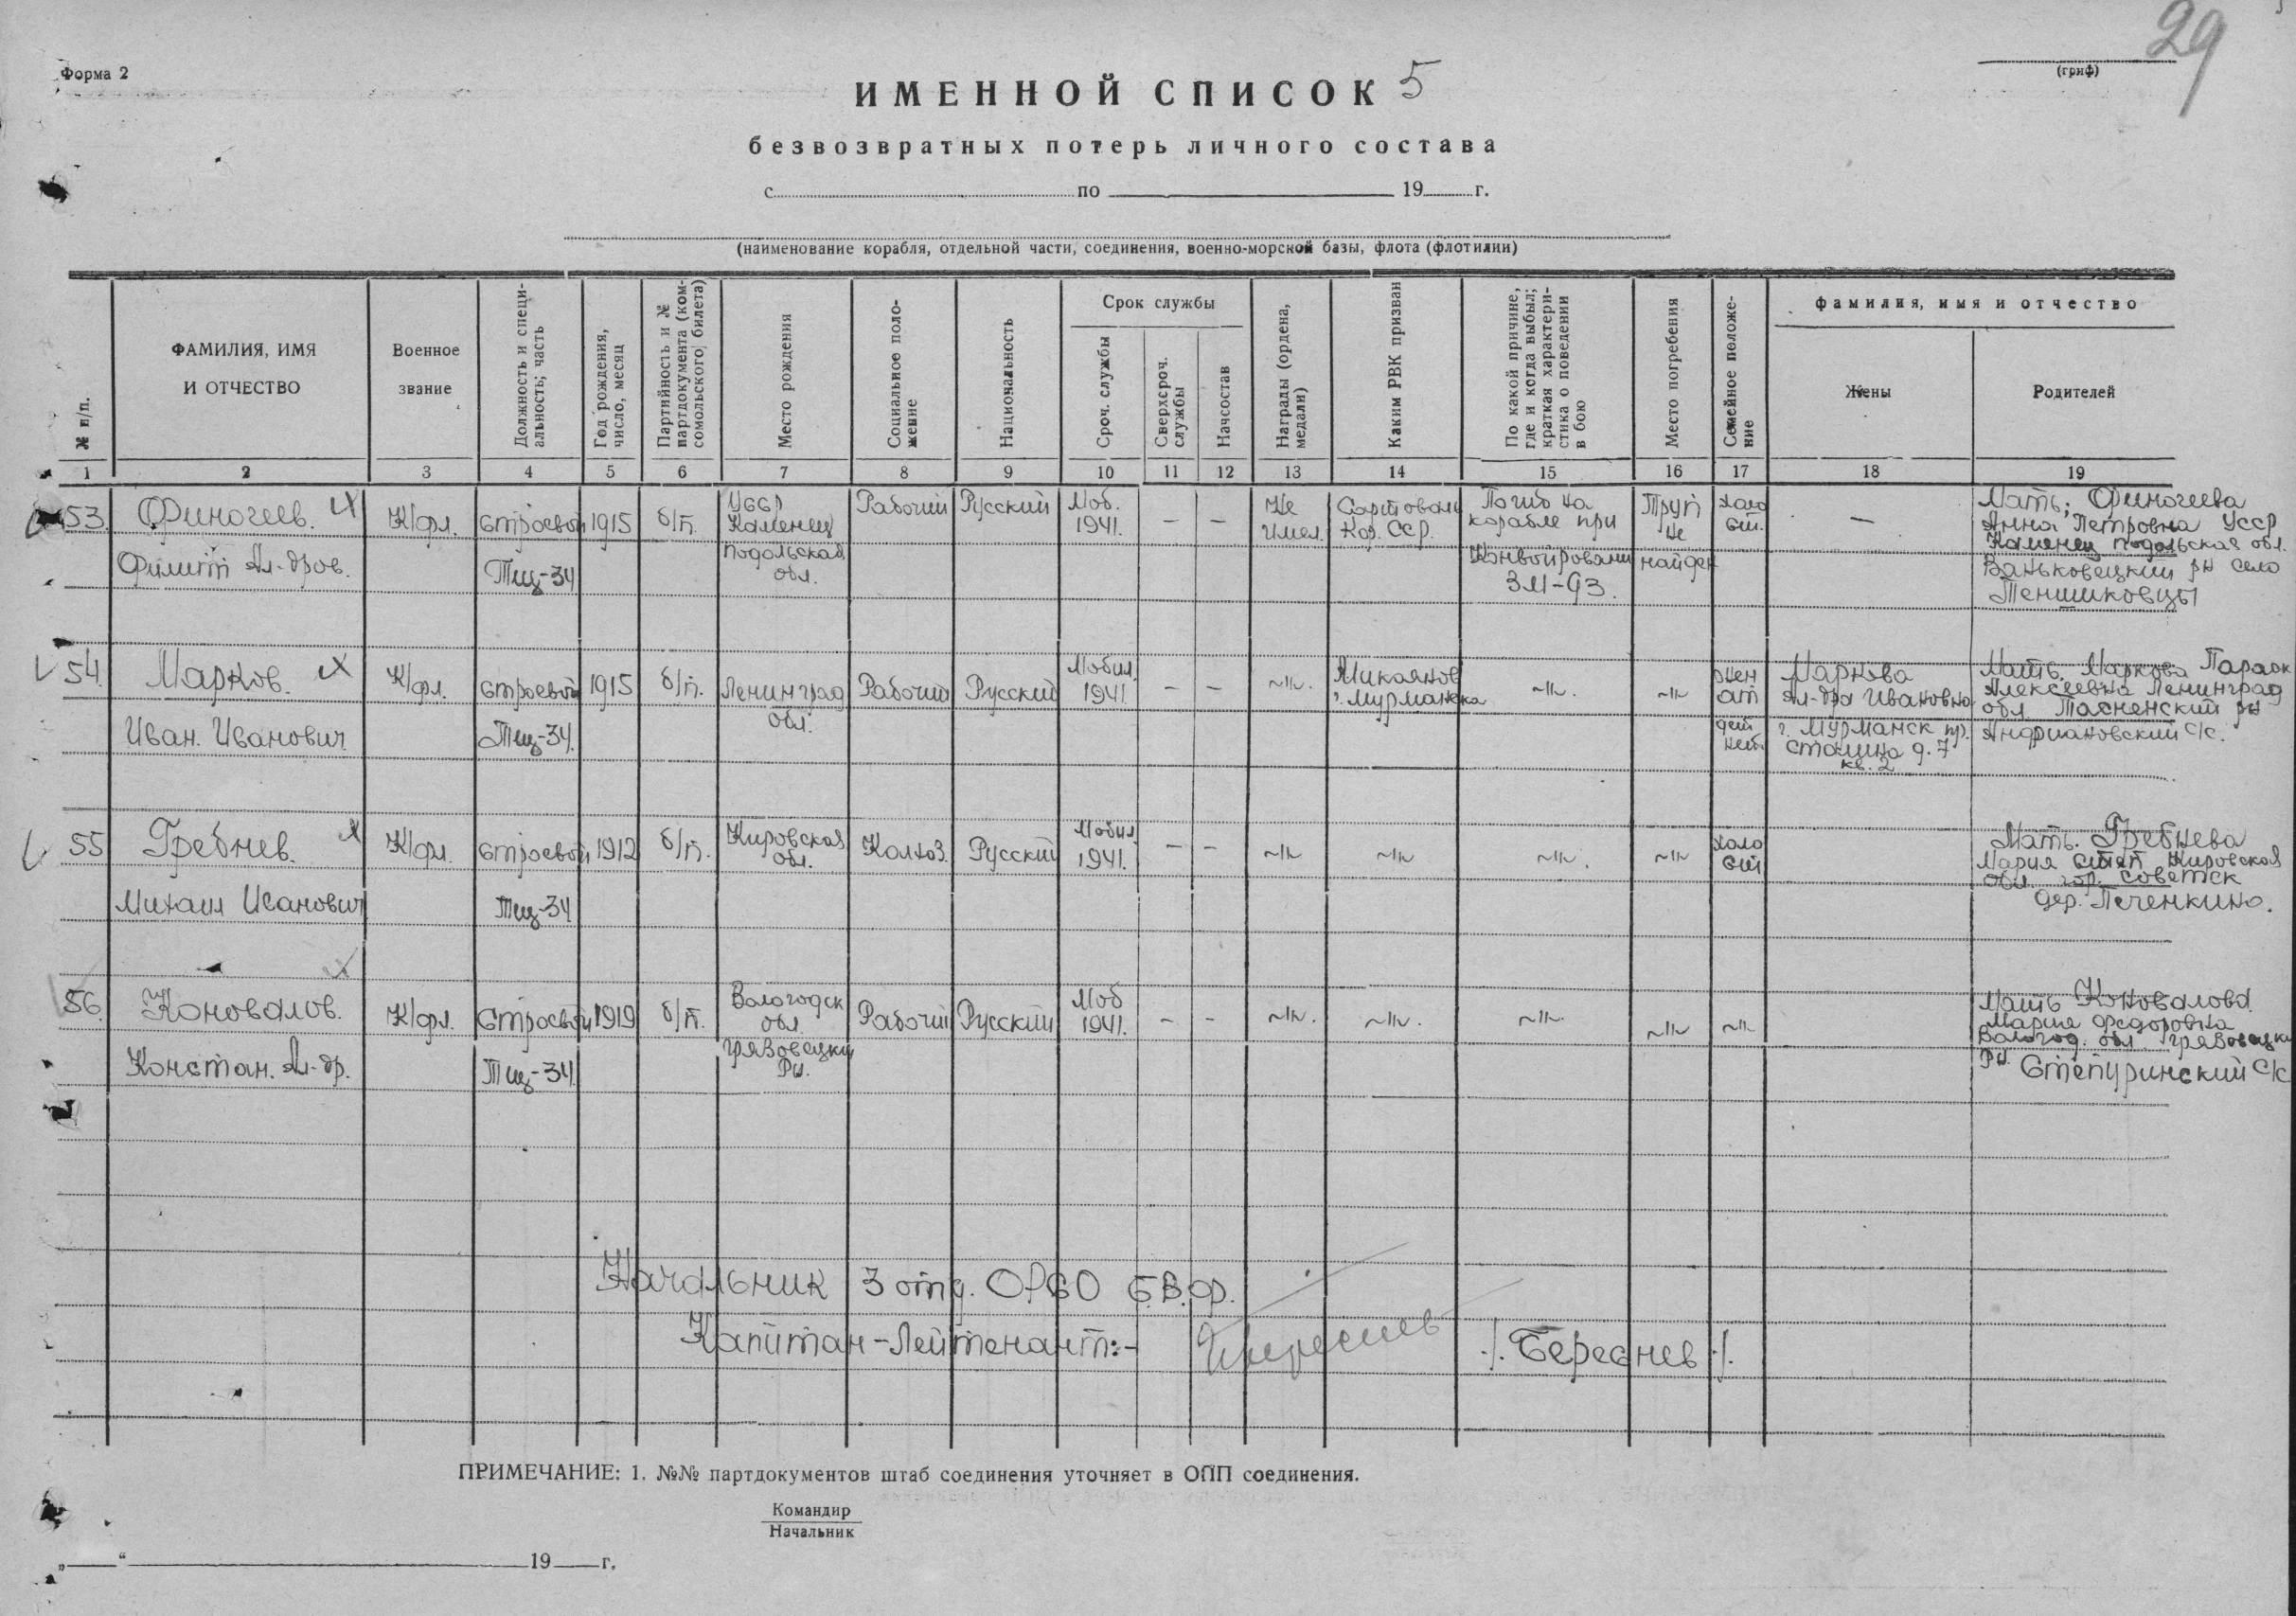 29
Форма 2
(гриф)
ИМЕННОЙ СПИСОК 5
безвозвратных потерь личного состава
с по 19 г.
(наименование корабля, отдельной части, соединения, военно-морской базы, флота (флотилии)
№ п/п.
ФАМИЛИЯ, ИМЯ
И ОТЧЕСТВО
Военное
звание
Должность и специ-
альность; часть
Год рождения,
число, месяц
Партийность и №
партдокумента (ком-
сомольского билета)
Место рождения
Социальное поло-
жение
Национальность
Срок службы
Сроч. службы
Сверхсроч.
службы
Начсостав
Награды (ордена,
медали)
Каким РВК призван
По какой причине,
где и когда выбыл;
краткая характери-
стика о поведении
в бою
Место погребения
Семейное положе-
ние
фамилия, имя и отчество
Жены
Родителей
1 2 3 4 5 6 7 8 9 10 11 12 13 14 15 16 17 18 19
53.
Финогеев.
Филипп Ал-дров.
К/фл.
строевой
Тщ-34
1915
б/п.
УССР
Каменец
подольская
обл.
Рабочий
Русский
Моб.
1941.
–
–
Не
имел.
Сортоволь
Кар. ССР.
Погиб на
корабле при
Конвоировани
3М-43.
Труп
не
найден
холо
ст.
–
Мать; Финогеева
Анна Петровна УССР
Каменец подольская обл.
Ваньковецкий рн село
Теншиковцы
54.
Марков.
Иван. Иванович
К/фл.
строевой
Тщ-34.
1915
б/п.
Ленинград
обл.
Рабочий
Русский
Мобил.
1941
–
–
~"~.
Микоянов
г. Мурманска
~"~.
~"~
жен
ат
дет
нет.
Маркова
Ал-дра Ивановна
г. Мурманск пр.
Сталина д. 7
кв. 2
Мать. Маркова Параск
Алексеевна Ленинград
обл. Тосненский рн
Андриановский с/с.
55
Гребнев.
Михаил Иванович
К/фл.
строевой
Тщ-34
1912
б/п.
Кировская
обл.
Колхоз.
Русский
Мобил
1941.
–
–
~"~
~"~
~"~.
~"~
холо
ст
Мать. Гребнева
Мария Степ Кировская
обл гор. Советск
дер. Печенкино.
56.
Коновалов.
Констан. Ал-др.
К/фл.
Строевой
Тщ-34.
1919
б/п.
Вологодск
обл.
грязовецкий
Рн.
Рабочий
Русский
Моб
1941.
–
–
~"~.
~"~.
~"~.
~"~
~"~
Мать Коновалова
Мария Федоровна
Вологод. обл грязовецки
Рн. Степуринский с/с
Начальник 3 отд. ОРСО Б.В.ф.
Капитан-Лейтенант:-
/. Береснев ./.
ПРИМЕЧАНИЕ: 1. №№ партдокументов штаб соединения уточняет в ОПП соединения.
Командир
Начальник
„ “ 19 г.